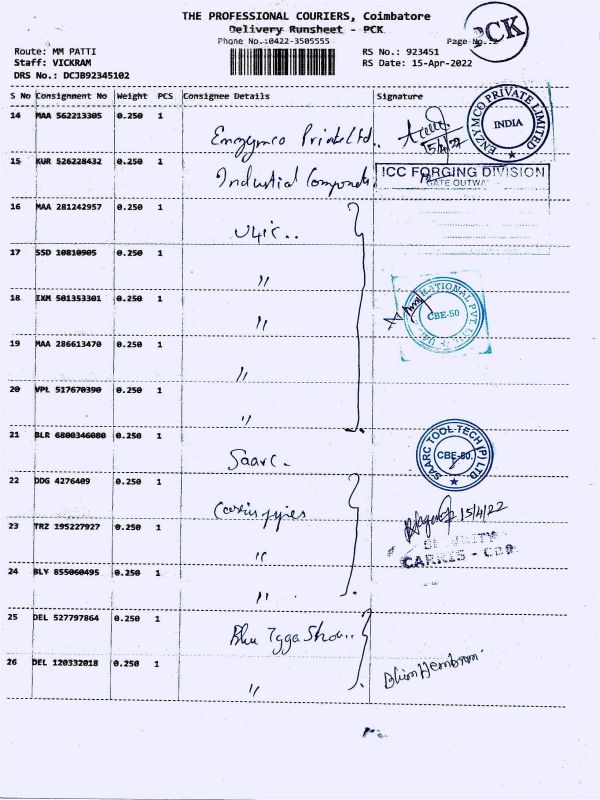 THE PROFESSIONAL COURIERS, Coimbatore
Delivery Runsheet - PCK
Phone No.:0422-3505555
Page No.:2
PCK
Route: MM PATTI
Staff: VICKRAM
DRS No.: DCJB92345102
RS No.: 923451
RS Date: 15-Apr-2022
S No Consignment No Weight PCS Consignee Details Signature
14 MAA 562213305 0.250 1
15/4/22
ENZYMCO PRIVATE LIMITED
INDIA
15 KUR 526228432 0.250 1 Industrial Components
ICC FORGING DIVISION
GATE OUTWA
16 MAA 281242957 0.250 1
17 SSD 10810905 0.250 1 "
18 IXM 501353301 0.250 1 "
CBE-50
19 MAA 286613470 0.250 1 "
20 VPL 517670390 0.250 1 "
21 BLR 6800346080 0.250 1 Saarc.
SAARC TOOL-TECH (P) LTD
CBE-50.
22 DDG 4276409 0.250 1
15/4/22
23 TRZ 195227927 0.250 1 "
SECURITY
CARRIS - CBE
24 BLY 855060495 0.250 1 "
25 DEL 527797864 0.250 1
26 DEL 120332018 0.250 1 "